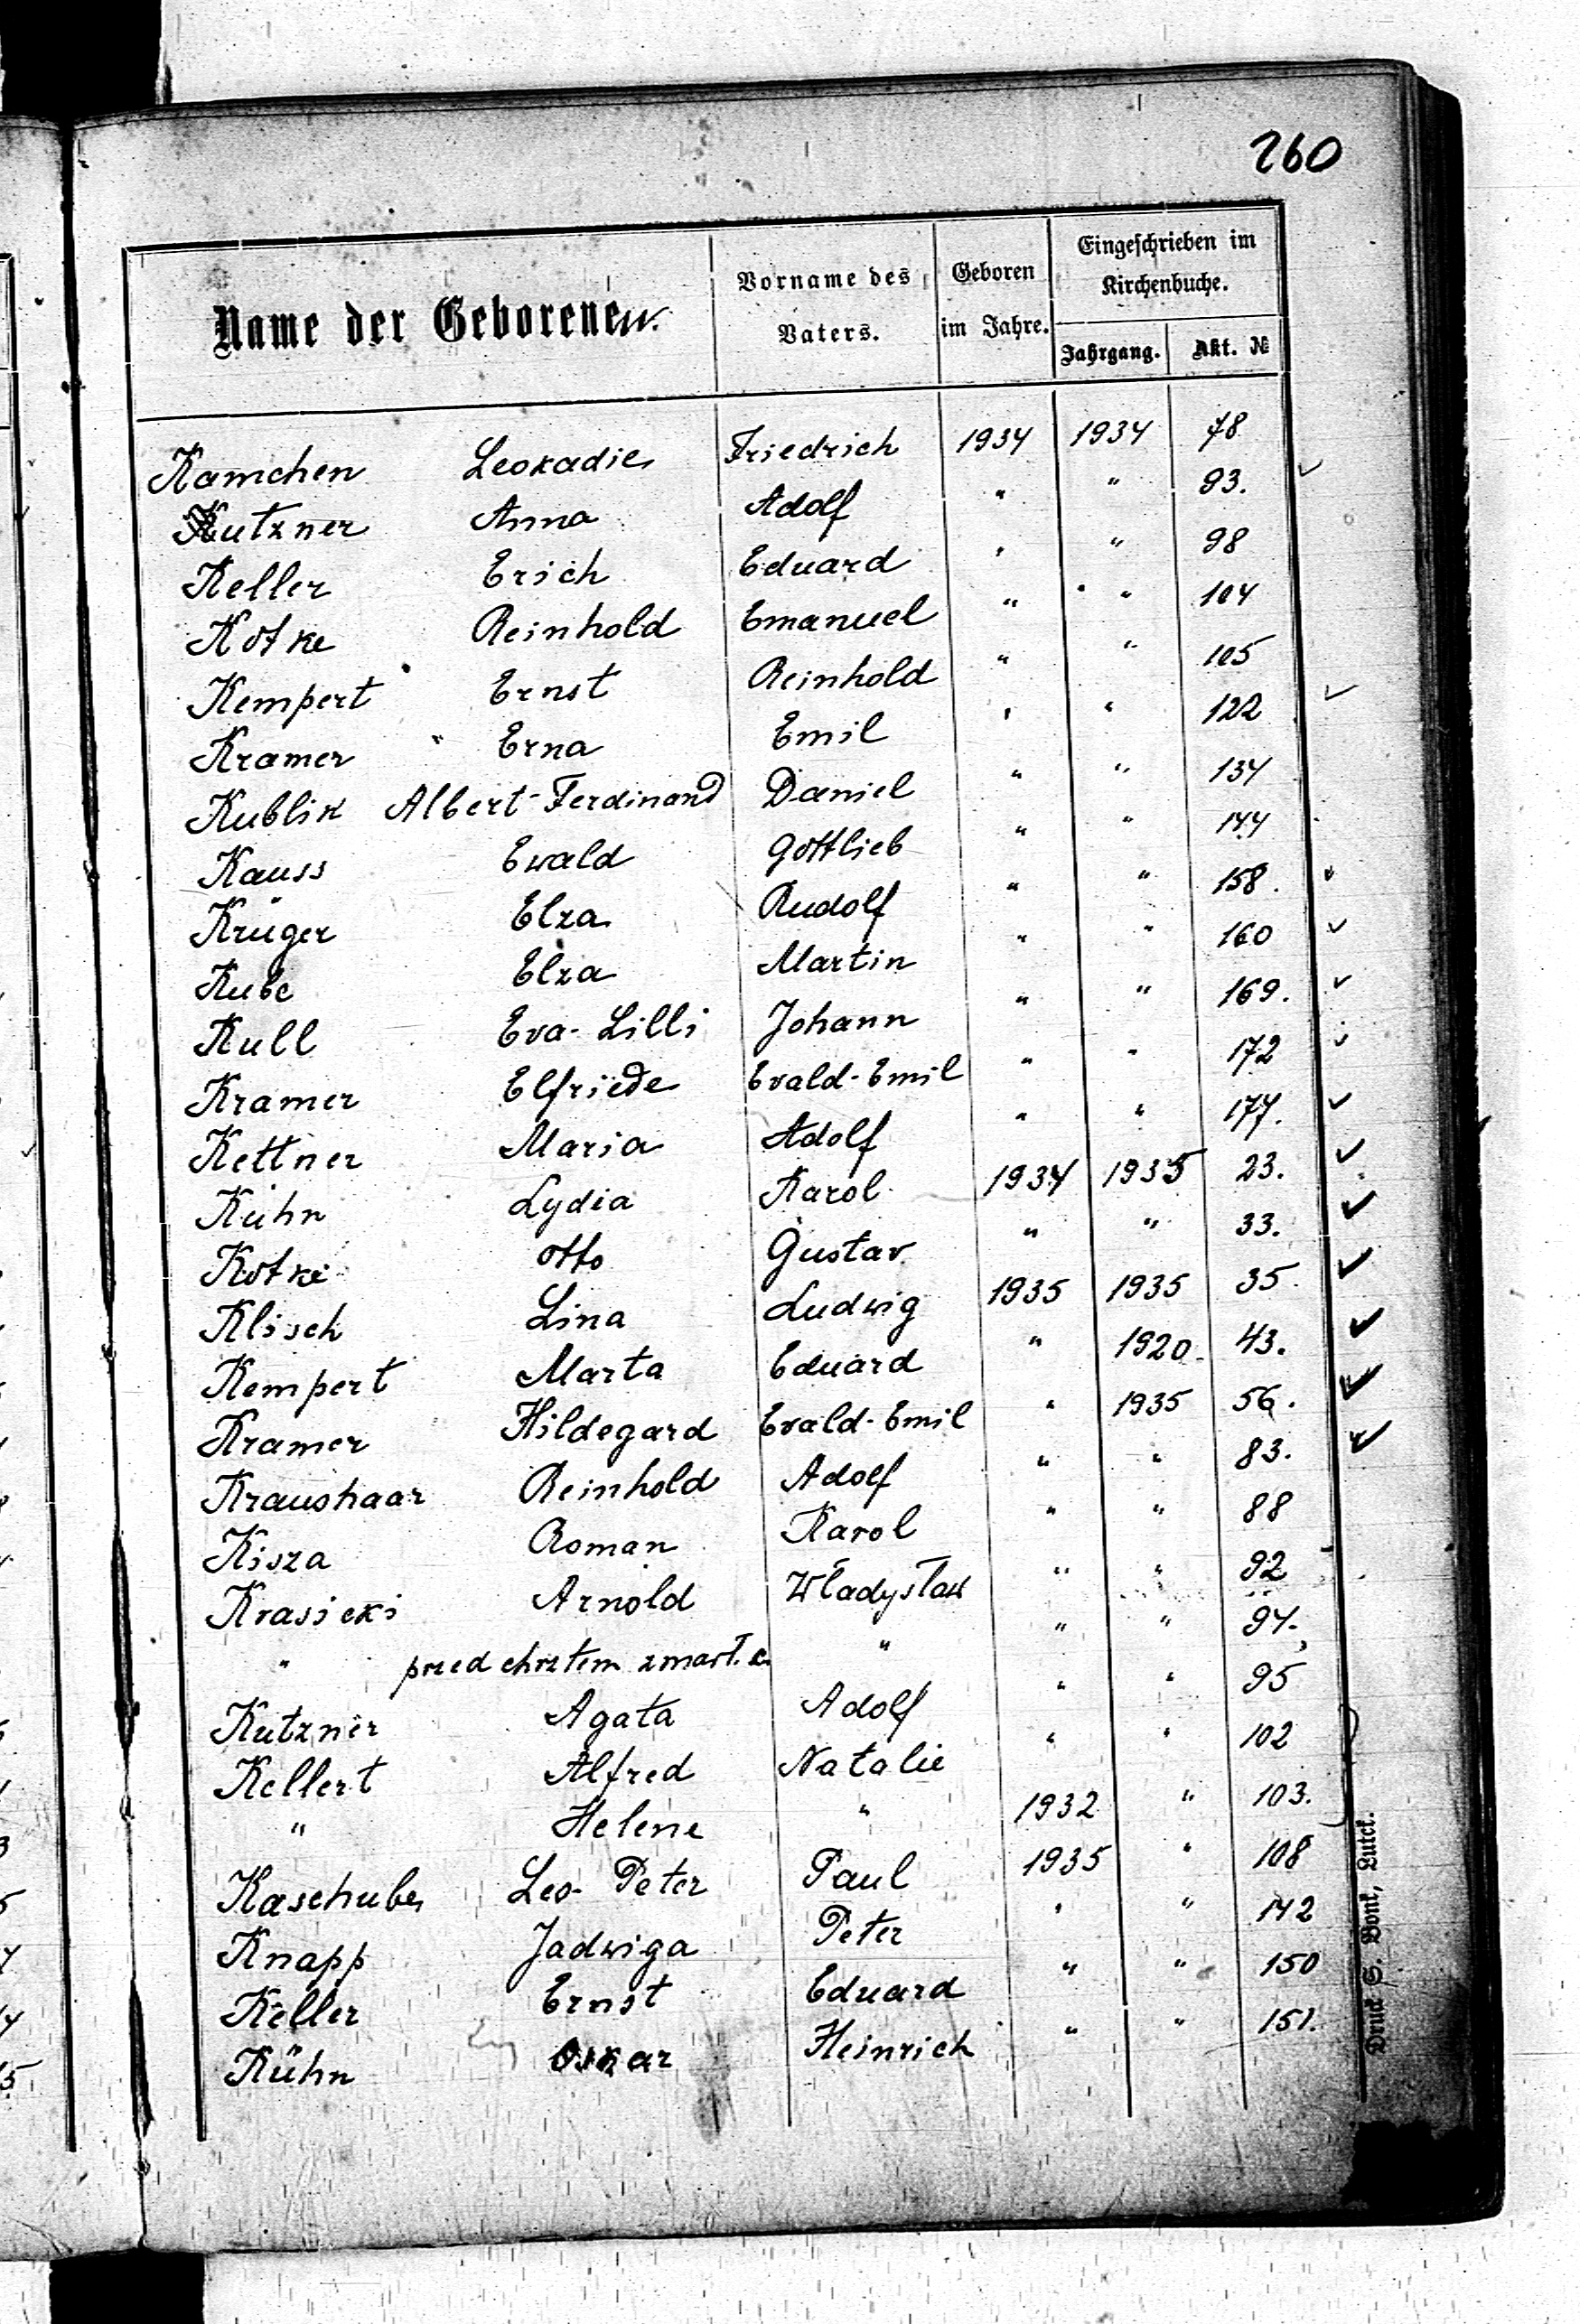 260
Name der Geborenen.
Vorname des Vaters.
Geboren im Jahre.
Eingeschrieben im Kirchenbuche.
Jahrgang. Akt. №
Kamchen Leokadie Friedrich 1934 1934 78
Kutzner Anna Adolf " " 93.
Keller Erich Eduard " " 98
Kotke Reinhold Emanuel " " 104
Kempert Ernst Reinhold " " 105
Kramer Erna Emil " " 122
Kublik Albert-Ferdinand Daniel " " 134
Kauss Ewald Gottlieb " " 144
Krüger Elza Rudolf " " 158.
Kube Elza Martin " " 160
Kull Eva-Lilli Johann " " 169.
Kramer Elfriede Evald-Emil " " 172
Kettner Maria Adolf " " 177.
Kühn Lydia Karol 1934 1935 23.
Kotke Otto Gustav " " 33.
Klisch Lina Ludwig 1935 1935 35.
Kempert Marta Eduard " 1920 43.
Kramer Hildegard Evald-Emil " 1935 56.
Kraushaar Reinhold Adolf " " 83.
Kisza Roman Karol " " 88
Krasicki Arnold Władysław " " 92
" przed chrztem zmarł. " " " 94.
Kutzner Agata Adolf " " 95
Kellert Alfred Natalie " " 102
" Helene " 1932 " 103.
Kaschube Leo-Peter Paul 1935 " 108
Knapp Jadwiga Peter " " 142
Keller Ernst Eduard " " 150
Kühn Oskar Heinrich " " 151.
Druck S. Bonk, Lutck.